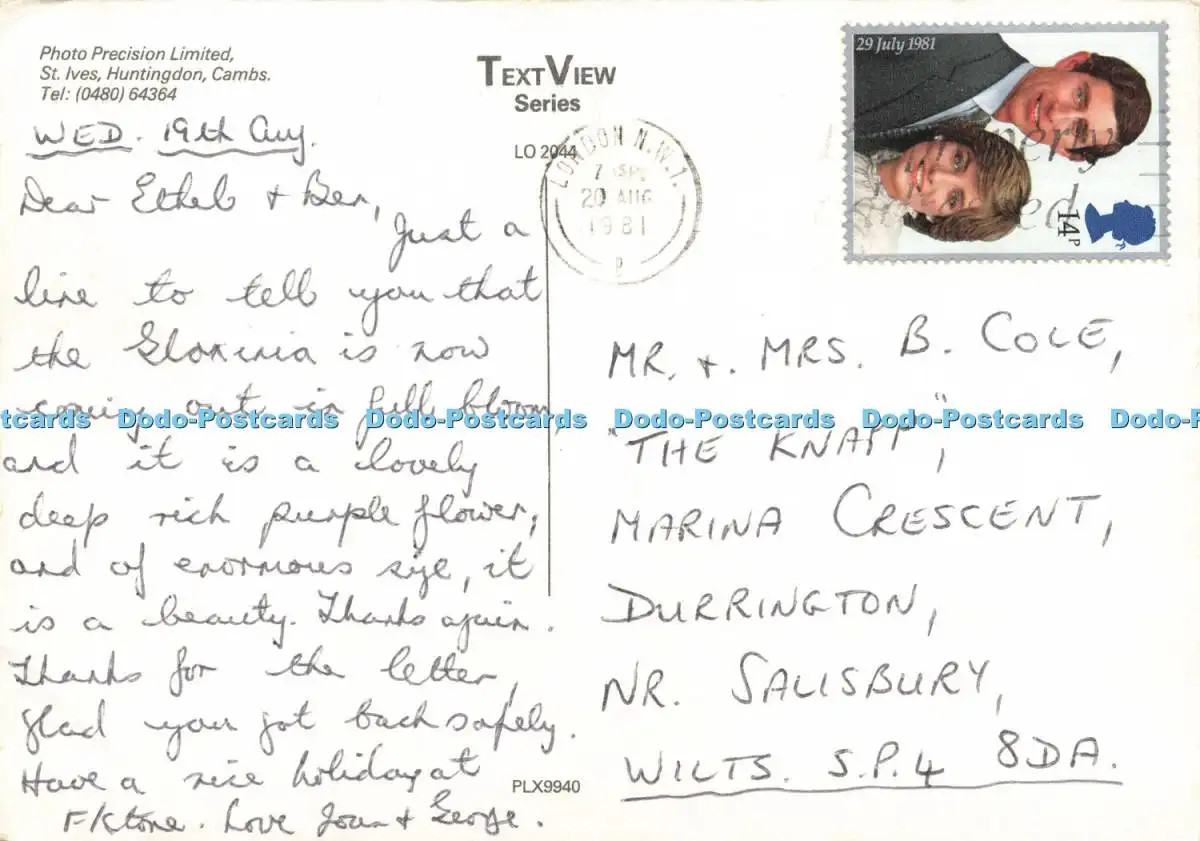 Photo Precision Limited,
St. Ives, Huntingdon, Cambs.
Tel: (0480) 64364
TEXTVIEW
Series
LO 2044
WED. 19th Aug.
Dear Ethel & Ben,
Just a
line to tell you that
the Gloxinia is now
coming out in full bloom,
and it is a lovely
deep rich purple flower,
and of enormous size, it
is a beauty. Thanks again.
Thanks for the letter,
glad you got back safely.
Have a nice holiday at
F/Ktone. Love Joan & George.
PLX9940
LONDON N.W.1.
20 AUG
1981
P
29 July 1981
14P
MR. + MRS. B. COLE,
"THE KNAPP",
MARINA CRESCENT,
DURRINGTON,
NR. SALISBURY,
WILTS. S.P.4 8DA.
Dodo-Postcards Dodo-Postcards Dodo-Postcards Dodo-Postcards